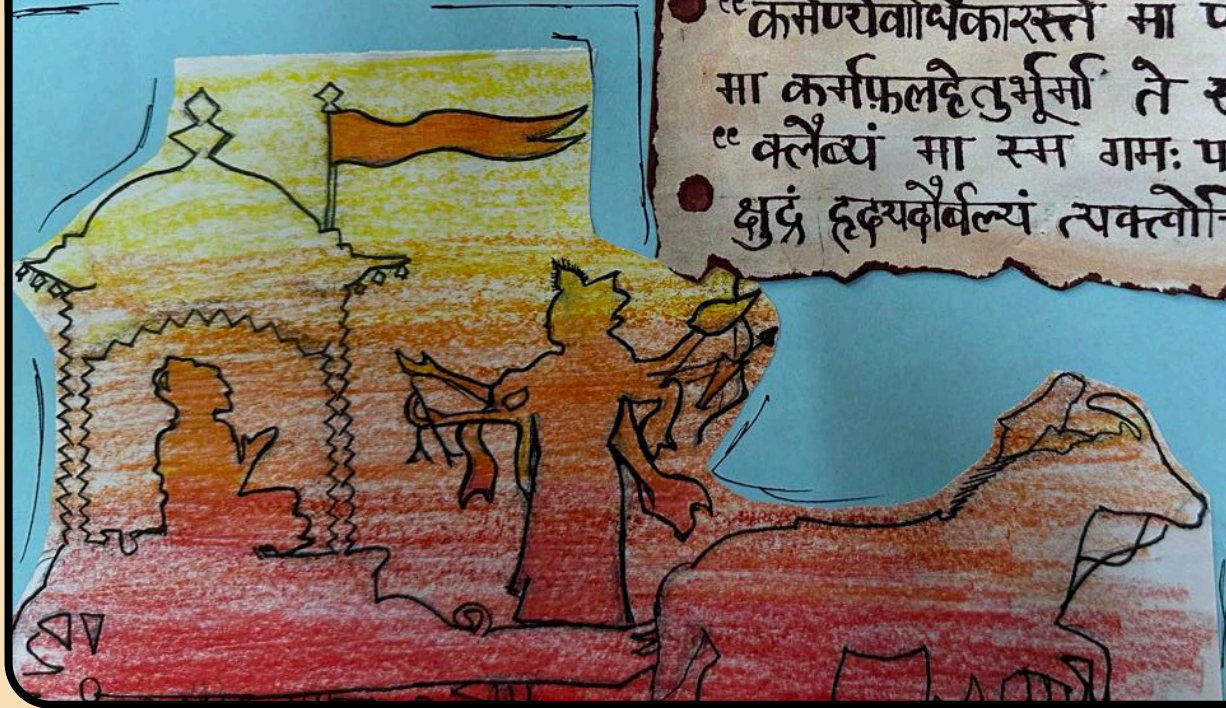 “कर्मण्येवाधिकारस्ते मा
मा कर्मफ़लहेतुर्भूर्मा ते
“क्लैब्यं मा स्म गमः
क्षुद्रं हृदयदौर्बल्यं